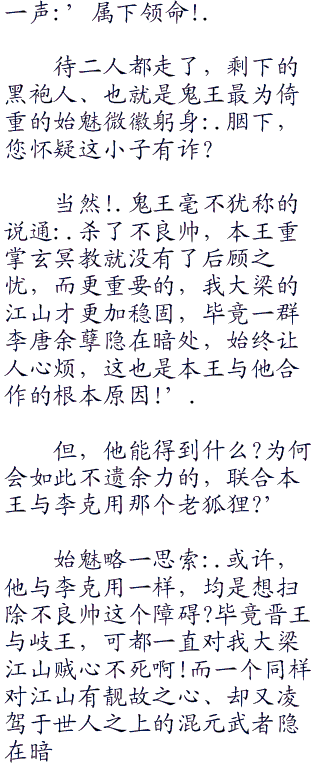 一声:’属下领命!.
待二人都走了，剩下的
黑袍人、也就是鬼王最为倚
重的始魅微徽躬身:.胭下，
您怀疑这小子有诈?
当然!.鬼王毫不犹称的
说通:.杀了不良帅，本王重
掌玄冥教就没有了后顾之
忧，而更重要的，我大梁的
江山才更加稳固，毕竟一群
李唐余孽隐在暗处，始终让
人心烦，这也是本王与他合
作的根本原因!’.
但，他能得到什么?为何
会如此不遗余力的，联合本
王与李克用那个老狐狸?’
始魅略一思索:.或许，
他与李克用一样，均是想扫
除不良帅这个障碍?毕竟晋王
与岐王，可都一直对我大梁
江山贼心不死啊!而一个同样
对江山有靓故之心、却又凌
驾于世人之上的混元武者隐
在暗